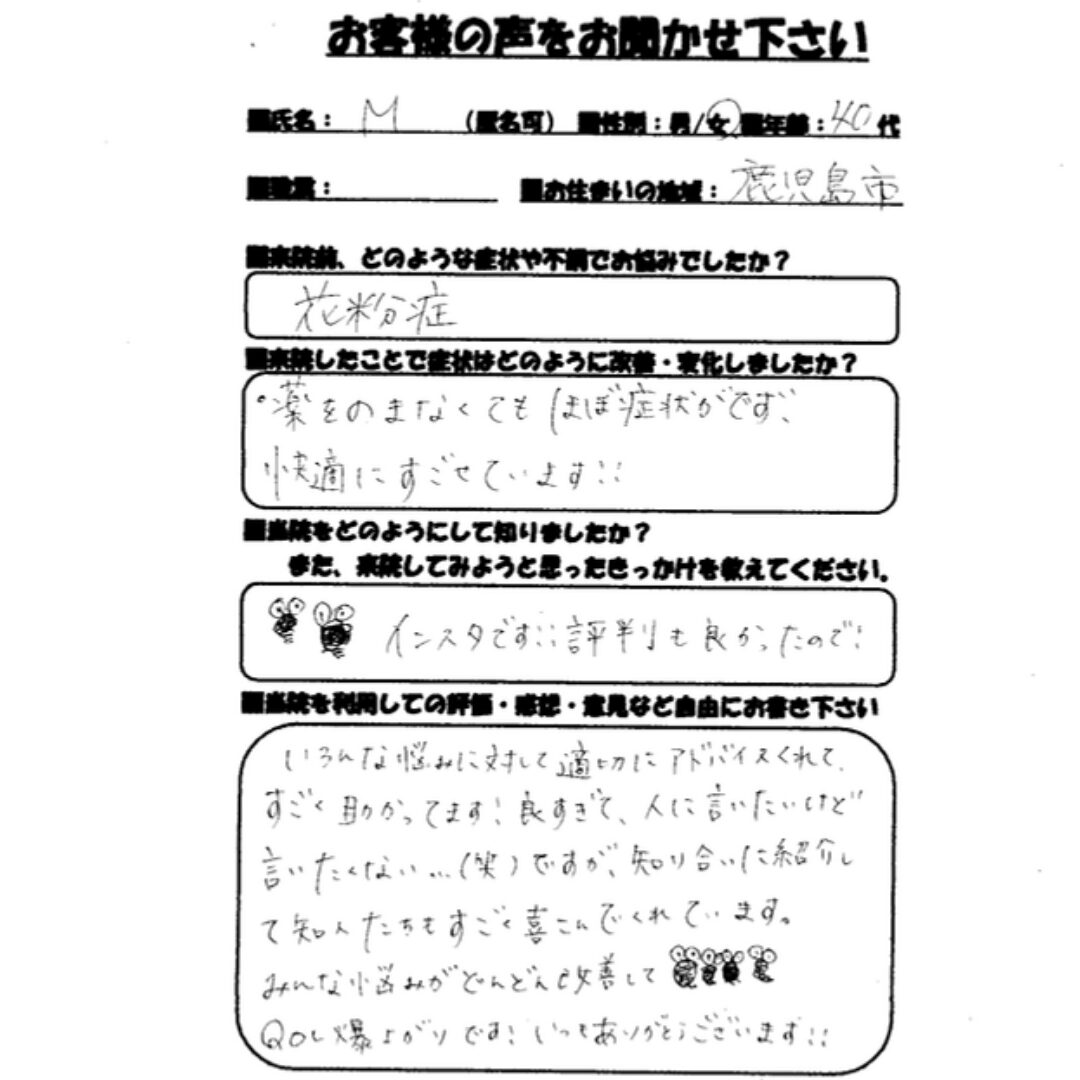 お客様の声をお聞かせ下さい
■氏名：M（匿名可）■性別：男/女 ■年齢：40代
■職業： ■お住まいの地域：鹿児島市
■来院前、どのような症状や不調でお悩みでしたか？
花粉症
■来院したことで症状はどのように改善・変化しましたか？
・薬をのまなくてもほぼ症状がでず、
快適にすごせています!!
■当院をどのようにして知りましたか？
また、来院してみようと思ったきっかけを教えてください。
インスタです!!評判も良かったので!
■当院を利用しての評価・感想・意見など自由にお書き下さい
いろんな悩みに対して適切にアドバイスくれて、
すごく助かってます!良すぎて、人に言いたいけど
言いたくない...(笑)ですが、知り合いに紹介し
て知人たちもすごく喜こんでくれています。
みんな悩みがどんどん改善して
QOL爆上がりです!いつもありがとうございます!!